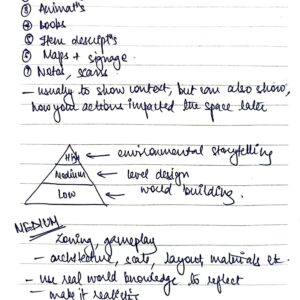 ③ Animat's
④ Books
⑤ Item descript's
⑥ Maps + signage
⑦ Notes, scans
- usually to show context, but can also show,
how your actions impacted the space later
High ← environmental storytelling
Medium ← level design
Low ← world building.
MEDIUM
Zoning, gameplay
- architecture, scale, layout, materials etc.
- use real world knowledge to reflect
- make it realistic